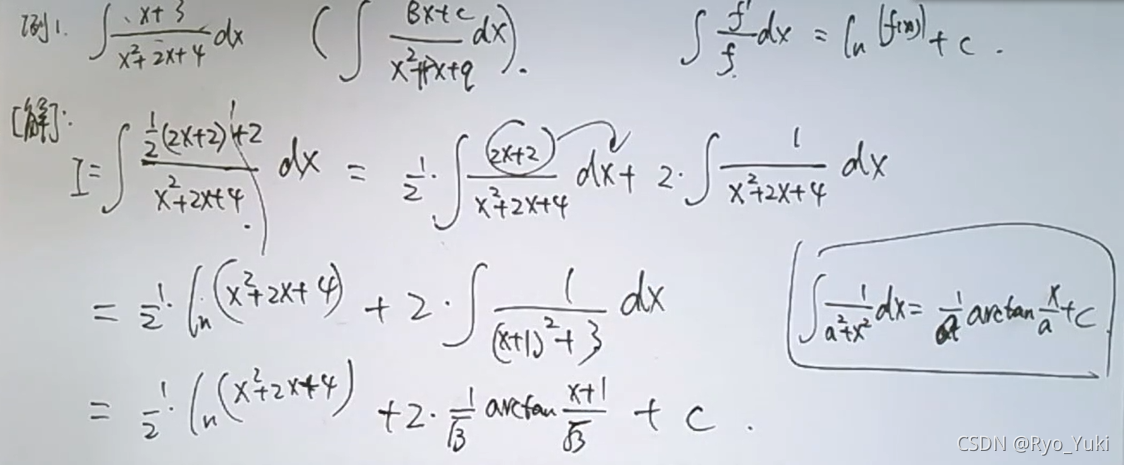 例1. ∫ (x+3)/(x²+2x+4) dx (∫ (Bx+c)/(x²+px+q) dx). ∫ f'/f dx = ln|f(x)| + c.
[解]: I = ∫ (½(2x+2)+2)/(x²+2x+4) dx = ½·∫ (2x+2)/(x²+2x+4) dx + 2·∫ 1/(x²+2x+4) dx
= ½·ln(x²+2x+4) + 2·∫ 1/((x+1)²+3) dx
∫ 1/(a²+x²) dx = 1/a arctan x/a + C
= ½·ln(x²+2x+4) + 2·1/√3 arctan (x+1)/√3 + c.
CSDN @Ryo_Yuki